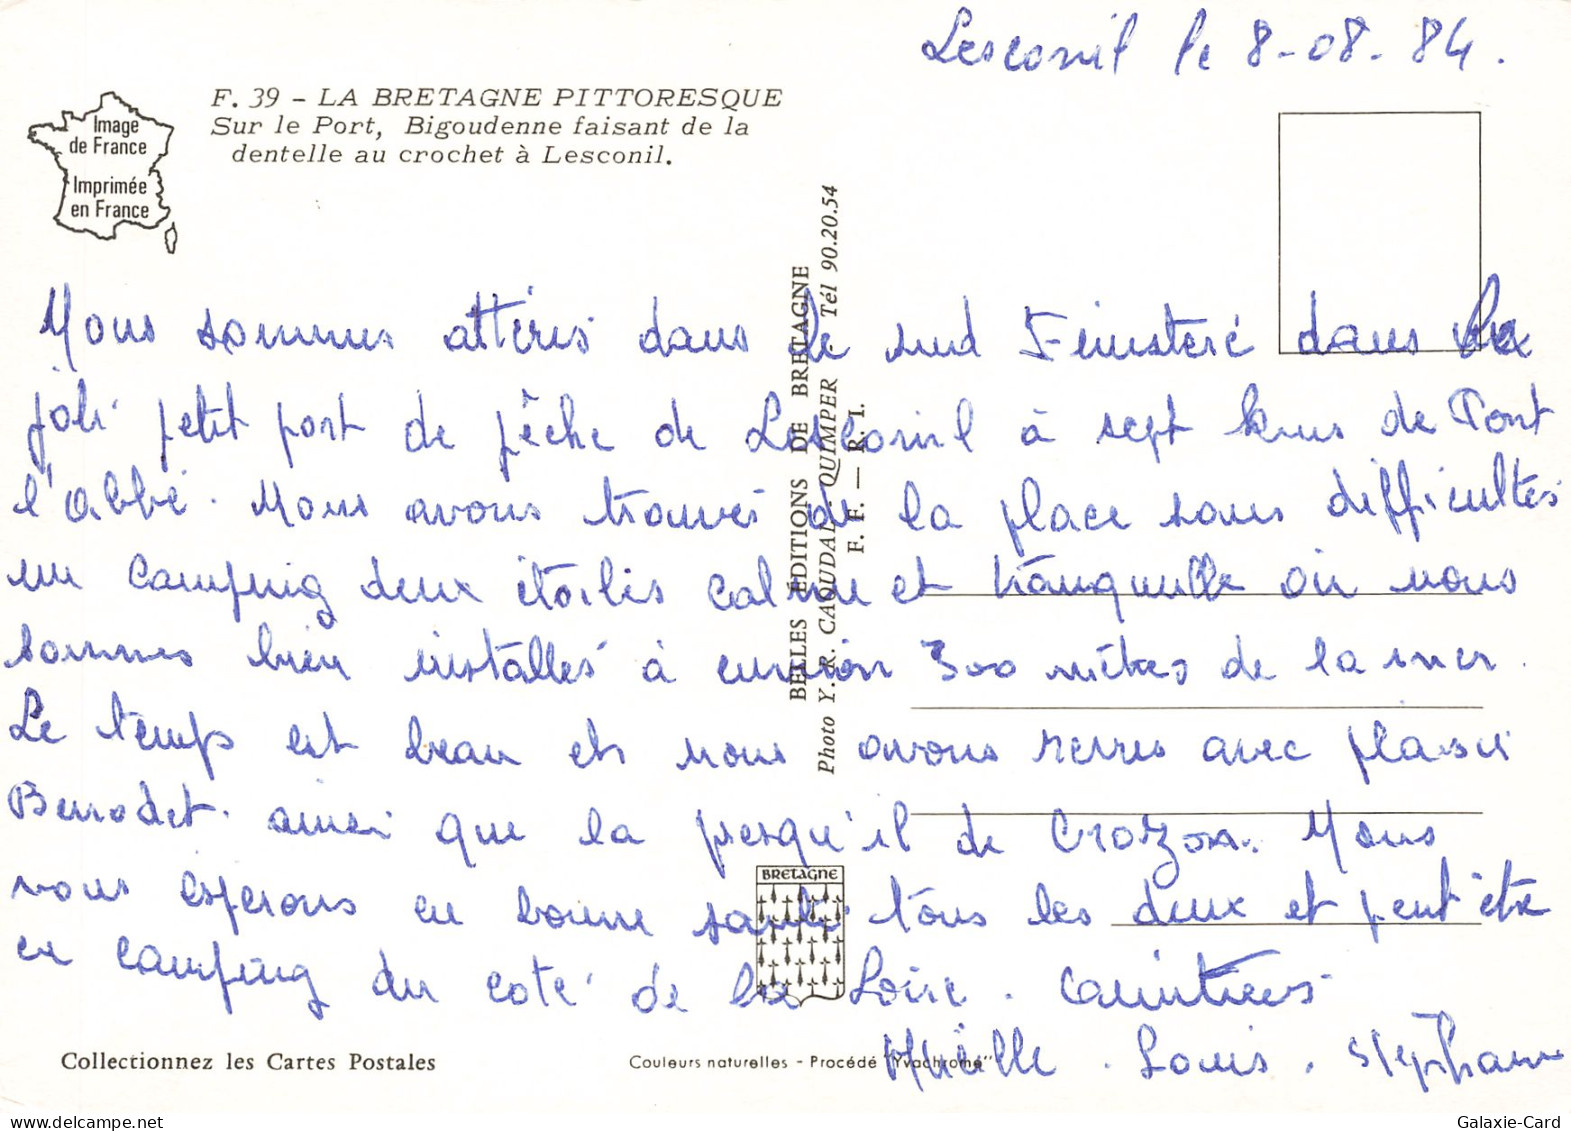 Lesconil le 8-08-84.
F. 39 - LA BRETAGNE PITTORESQUE
Sur le Port, Bigoudenne faisant de la
dentelle au crochet à Lesconil.
Image
de France
Imprimée
en France
BELLES ÉDITIONS DE BRETAGNE
Photo Y.-R. CAOUDAL - QUIMPER - Tél 90.20.54
F. F. — R. I.
Nous sommes attéris dans le sud Finistère dans
joli petit port de pêche de Lesconil à sept kms de Pont
l'abbé. Nous avons trouvés de la place sans difficultés
un camping deux étoiles calme et tranquille où nous
sommes bien installés à environ 300 mètres de la mer.
Le temps est beau et nous avons revus avec plaisir
Benodet ainsi que la presqu'il de Crozon. Nous
vous espérons en bonne santé tous les deux et peut être
en camping du coté de la Loire.
BRETAGNE
Louis. Stéphane
Collectionnez les Cartes Postales
Couleurs naturelles - Procédé "Yvachrome"
Galaxie-Card
www.delcampe.net